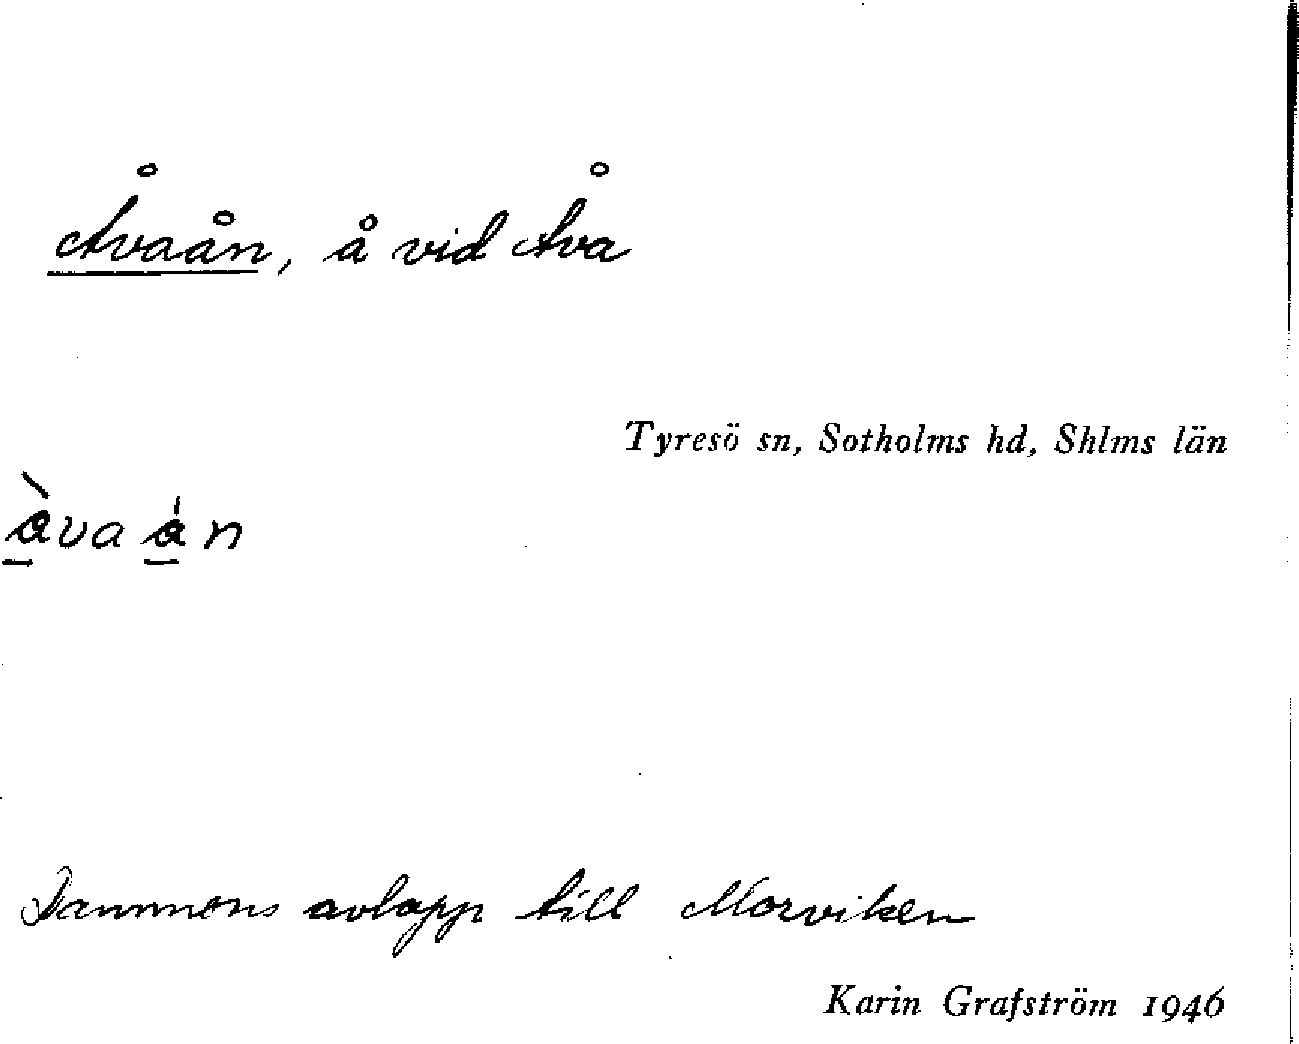 Åvaån, å vid Åva
Tyresö sn, Sotholms hd, Shlms län
àva án
Dammens avlopp till Morviken
Karin Grafström 1946